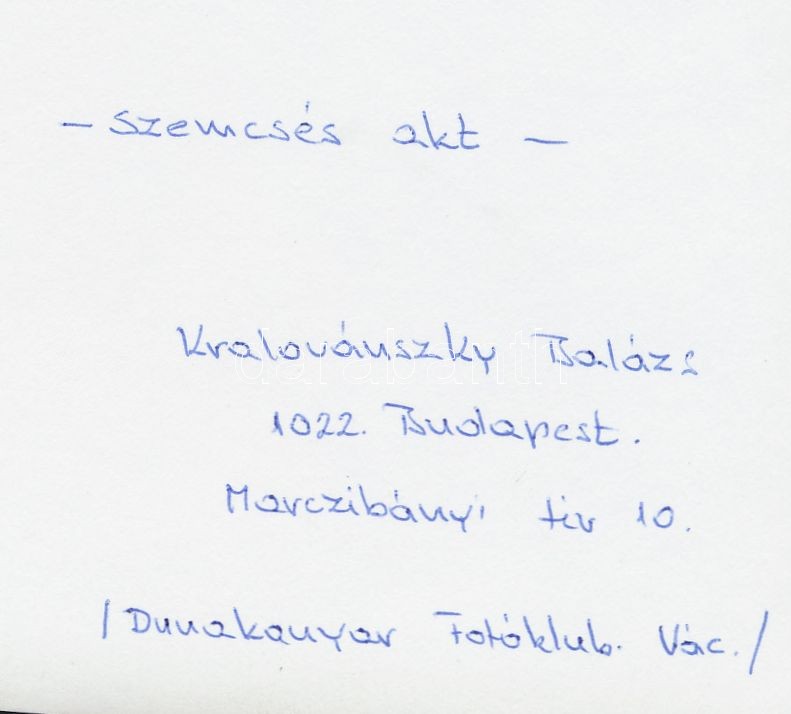 – szemcsés akt –
Kralovánszky Balázs
1022. Budapest.
Marczibányi tér 10.
/Dunakanyar Fotóklub. Vác./